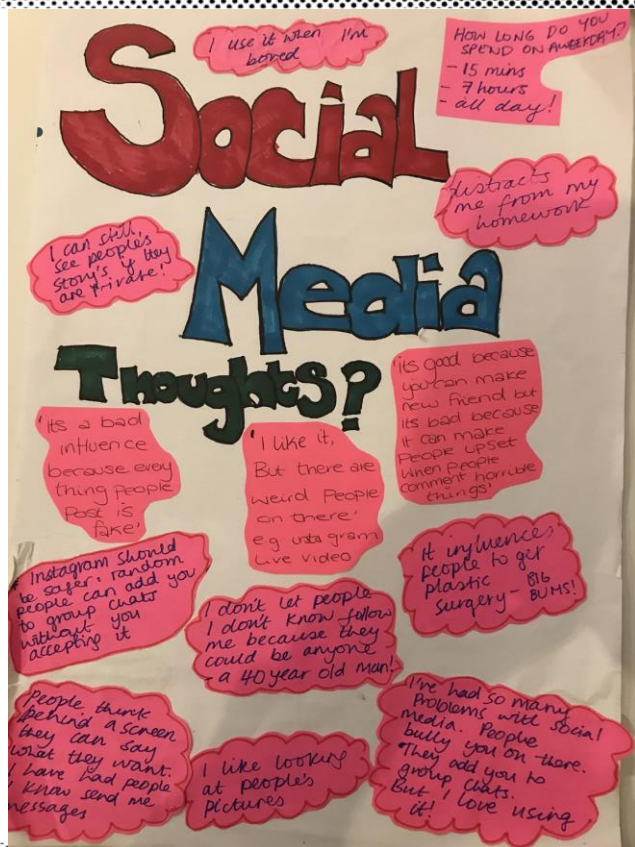 I use it when I'm
bored
HOW LONG DO YOU
SPEND ON A WEEKDAY?
- 15 mins
- 7 hours
- all day!
Social
distracts
me from my
homework
I can still
see people's
story's if they
are private!
Media
Thoughts?
'its good because
you can make
new friend but
its bad because
it can make
People upset
when people
comment horrible
things'
'Its a bad
influence
because every
thing People
Post is
fake'
'I like it,
But there are
weird People
on there'
e.g instagram
Live video
Instagram should
be safer: random
people can add you
to group chats
without you
accepting it
It influences
people to get
plastic
surgery - BIG
BUMS!
I don't let people
I don't know follow
me because they
could be anyone
- a 40 year old man!
People think
behind a screen
they can say
what they want.
I have had people
I know send me
messages
I like looking
at people's
pictures
I've had so many
Problems with social
media. People
bully you on there.
They add you to
group chats.
But I love using
it!